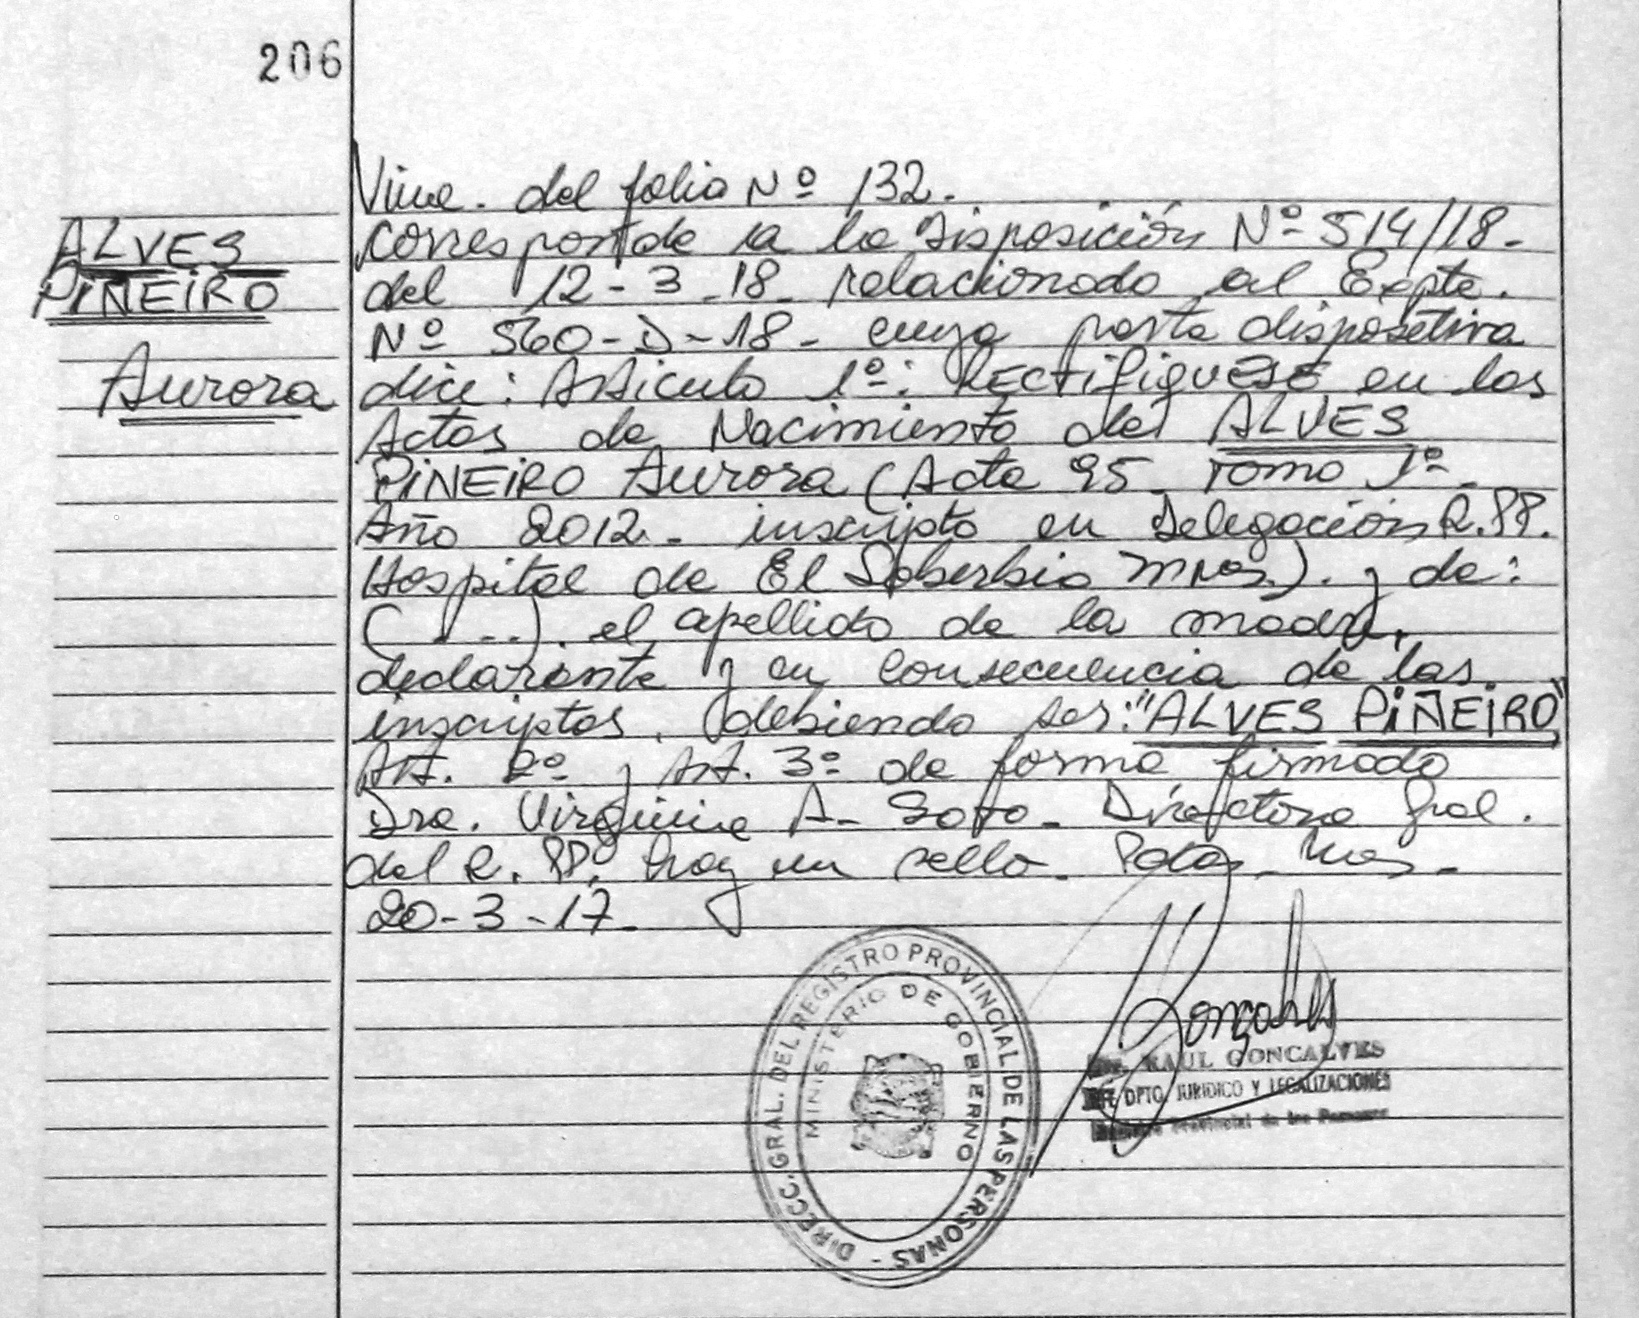 206
ALVES
PIÑEIRO
Aurora
Viene. del folio Nº 132.
Corresponde a la Disposición Nº 514/18-
del 12-3-18- relacionado al Expte.
Nº 560-D-18- cuya parte dispositiva
dice: Artículo 1º: RECtifiqUESE en las
Actas de Nacimiento de ALVES
PiNEiRO Aurora (Acta 95 - Tomo 1º-
Año 2012- inscripta en Delegación R.PP.
Hospital de El Soberbio Mnes.). y de:
(....). el apellido de la madre,
declarante y en consecuencia de las
inscriptas, debiendo ser: "ALVES PiÑEiRO"
Art. 2º y Art. 3º de forma firmado
Dra. Virginia A- Soto- Directora Gral.
del R. PP. hay un sello- Pdas- Mnes-
20-3-17-
DIRECC. GRAL. DEL REGISTRO PROVINCIAL DE LAS PERSONAS -
MINISTERIO DE GOBIERNO
Goncalves
RAUL GONCALVES
JEFE DPTO. JURIDICO Y LEGALIZACIONES
Registro Provincial de las Personas